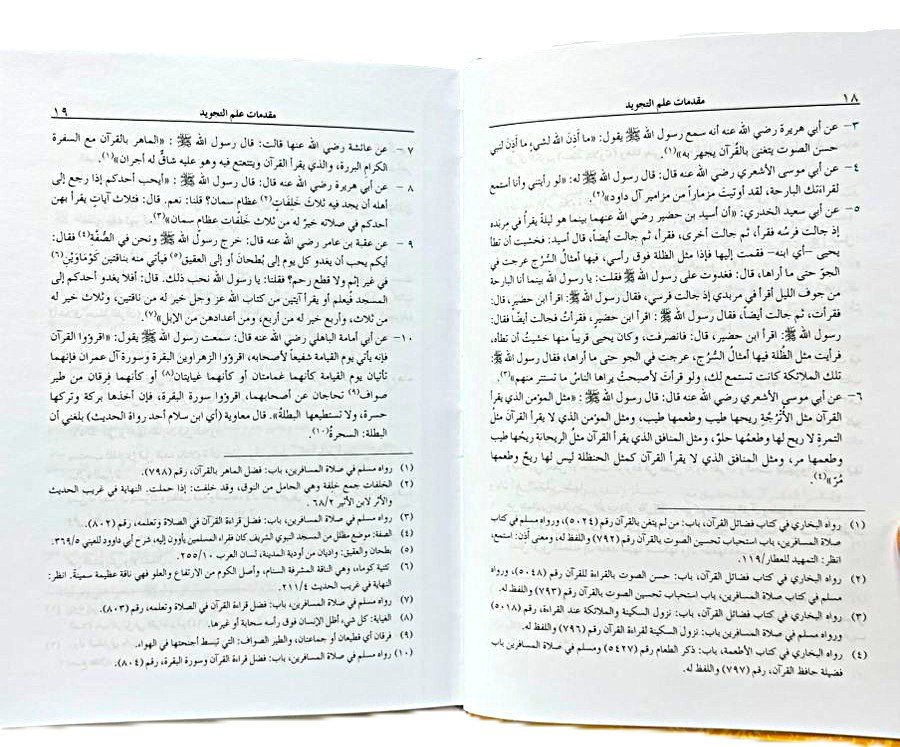 ١٨
مقدمات علم التجويد
٣– عن أبي هريرة رضي الله عنه أنه سمع رسول الله ﷺ يقول: «ما أَذنَ الله لشيءٍ ما أَذِنَ لنبي
حسن الصوت يتغنى بالقُرآن يجهر به»(١).
٤– عن أبي موسى الأشعري رضي الله عنه قال: قال رسول الله ﷺ له: «لو رأيتني وأنا أستمع
لقراءتك البارحة، لقد أوتيتَ مزماراً من مزامير آل داود»(٢).
٥– عن أبي سعيد الخدري: «أن أسيد بن حضير رضي الله عنهما بينما هو ليلةً يقرأ في مربده
إذ جالت فرسُه فقرأ، ثم جالت أخرى، فقرأ، ثم جالت أيضاً، قال أسيد: فخشيت أن تطأ
يحيى –أي ابنه– فقمت إليها فإذا مثل الظلة فوق رأسي، فيها أمثالُ السُّرُج عرجت في
الجوّ حتى ما أراها، قال: فغدوت على رسول الله ﷺ فقلت: يا رسول الله بينما أنا البارحة
من جوف الليل أقرأ في مربدي إذ جالت فرسي، فقال رسول الله ﷺ: اقرأ ابن حضير، قال:
فقرأت، ثم جالت أيضاً، فقال رسول الله ﷺ: اقرأ ابن حضيرٍ، فقرأتُ فجالت أيضًا فقال:
رسول الله ﷺ: اقرأ ابن حضير، قال: فانصرفت، وكان يحيى قريباً منها خشيتُ أن تطأه،
فرأيت مثل الظّلة فيها أمثالُ السُّرُج، عرجت في الجو حتى ما أراها، فقال رسول الله ﷺ:
تلك الملائكة كانت تستمع لك، ولو قرأتَ لأصبحتْ يراها الناسُ ما تستتر منهم»(٣).
٦– عن أبي موسى الأشعري رضي الله عنه قال: قال رسول الله ﷺ : «مثل المؤمن الذي يقرأ
القرآن مثل الأُتْرُجّةِ ريحها طيب وطعمها طيب، ومثل المؤمن الذي لا يقرأ القرآن مثلُ
التمرةِ لا ريح لها وطعمُها حلوٌ، ومثل المنافق الذي يقرأ القرآن مثلُ الريحانة ريحُها طيب
وطعمها مر، ومثل المنافق الذي لا يقرأ القرآن كمثل الحنظلة ليس لها ريحٌ وطعمها
مُرّ»(٤).
(١) رواه البخاري في كتاب فضائل القرآن، باب: من لم يتغن بالقرآن رقم (٥٠٢٤) ورواه مسلم في كتاب
صلاة المسافرين، باب استحباب تحسين الصوت بالقرآن رقم (٧٩٢) واللفظ له، ومعنى أذن: استمع،
انظر: التمهيد للعطار/١١٩.
(٢) رواه البخاري في كتاب فضائل القرآن، باب: حسن الصوت بالقراءة للقرآن رقم (٥٠٤٨)، ورواه
مسلم في كتاب صلاة المسافرين، باب استحباب تحسين الصوت بالقرآن رقم (٧٩٣) واللفظ له.
(٣) رواه البخاري في كتاب فضائل القرآن، باب: نزول السكينة والملائكة عند القراءة، رقم (٥٠١٨)
ورواه مسلم في صلاة المسافرين، باب: نزول السكينة لقراءة القرآن رقم (٧٩٦) واللفظ له.
(٤) رواه البخاري في كتاب الأطعمة، باب: ذكر الطعام رقم (٥٤٢٧) ومسلم في صلاة المسافرين باب
فضيلة حافظ القرآن، رقم (٧٩٧) واللفظ له.
مقدمات علم التجويد
١٩
٧– عن عائشة رضي الله عنها قالت: قال رسول الله ﷺ : «الماهر بالقرآن مع السفرة
الكرام البررة، والذي يقرأ القرآن ويتتعتع فيه وهو عليه شاقٌّ له أجران»(١).
٨– عن أبي هريرة رضي الله عنه قال: قال رسول الله ﷺ : «أيحب أحدكم إذا رجع إلى
أهله أن يجد فيه ثلاث خَلفات(٢) عظام سمان؟ قلنا: نعم. قال: فثلاث آياتٍ يقرأ بهن
أحدكم في صلاته خيرٌ له من ثلاث خَلفاتٍ عظام سمان»(٣).
٩– عن عقبة بن عامر رضي الله عنه قال: خرج رسول الله ﷺ ونحن في الصُّفّة(٤) فقال:
أيكم يحب أن يغدو كل يوم إلى بُطحان أو إلى العقيق(٥) فيأتي منه بناقتين كَوْمَاوَيْنِ(٦)
في غير إثم ولا قطع رحم؟ فقلنا: يا رسول الله نحب ذلك. قال: أفلا يغدو أحدكم إلى
المسجد فيعلم أو يقرأ آيتين من كتاب الله عز وجل خير له من ناقتين، وثلاث خير له
من ثلاث، وأربع خير له من أربع، ومن أعدادهن من الإبل»(٧).
١٠– عن أبي أمامة الباهلي رضي الله عنه قال: سمعت رسول الله ﷺ يقول: «اقرؤوا القرآن
فإنه يأتي يوم القيامة شفيعاً لأصحابه، اقرؤوا الزهراوين البقرة وسورة آل عمران فإنهما
تأتيان يوم القيامة كأنهما غمامتان أو كأنهما غيايتان(٨) أو كأنهما فِرقان من طير
صواف(٩) تحاجان عن أصحابهما، اقرؤوا سورة البقرة، فإن أخذها بركة وتركها
حسرة، ولا تستطيعها البطلةُ». قال: معاوية (أي ابن سلام أحد رواة الحديث) بلغني أن
البطلة: السحرةُ(١٠).
(١) رواه مسلم في صلاة المسافرين، باب: فضل الماهر بالقرآن، رقم (٧٩٨).
(٢) الخلفات جمع خلفة وهي الحامل من النوق، وقد خلفت: إذا حملت. النهاية في غريب الحديث
والأثر لابن الأثير ٦٨/٢.
(٣) رواه مسلم في صلاة المسافرين، باب: فضل قراءة القرآن في الصلاة وتعلمه، رقم (٨٠٢).
(٤) الصفة: موضع مظلل من المسجد النبوي الشريف كان فقراء المسلمين يأوون إليه، شرح أبي داود للعيني ٣٦٩/٥
(٥) بطحان والعقيق: واديان من أودية المدينة، لسان العرب ٢٥٥/١٠.
(٦) تثنية كوماء، وهي الناقة المشرفة السنام، وأصل الكوم من الارتفاع والعلو فهي ناقة عظيمة سمينةٌ. انظر:
النهاية في غريب الحديث ٢١١/٤.
(٧) رواه مسلم في صلاة المسافرين، باب: فضل قراءة القرآن في الصلاة وتعلمه، رقم (٨٠٣).
(٨) الغياية: كل شيء أظل الإنسان فوق رأسه سحابة أو غيرها.
(٩) فرقان أي قطيعان أو جماعتان، والطير الصواف: التي تبسط أجنحتها في الهواء.
(١٠) رواه مسلم في صلاة المسافرين، باب: فضل قراءة القرآن وسورة البقرة، رقم (٨٠٤).